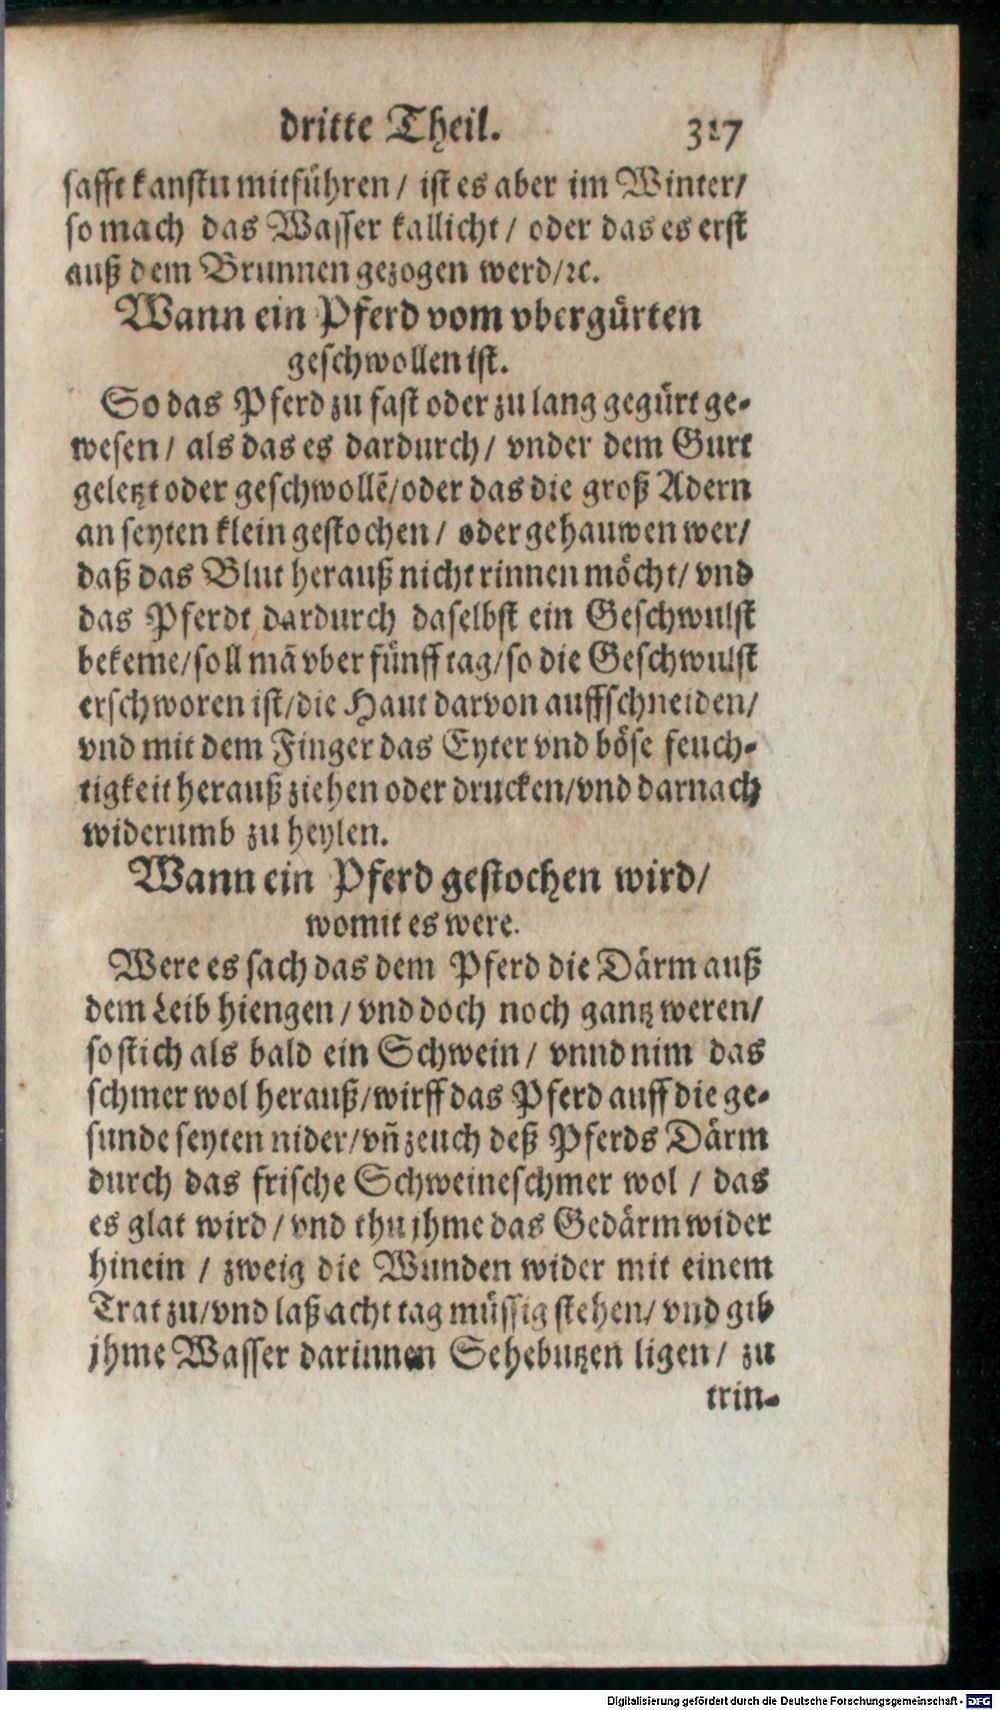 dritte Theil. 317
safft kanstu mitführen / ist es aber im Winter/
so mach das Wasser kallicht / oder das es erst
auß dem Brunnen gezogen werd/ꝛc.
Wann ein Pferd vom vbergürten
geschwollen ist.
So das Pferd zu fast oder zu lang gegürt ge-
wesen / als das es dardurch / vnder dem Gurt
geletzt oder geschwollẽ/oder das die groß Adern
an seyten klein gestochen / oder gehauwen wer/
daß das Blut herauß nicht rinnen möcht/ vnd
das Pferdt dardurch daselbst ein Geschwulst
bekeme/soll mã vber fünff tag/so die Geschwulst
erschworen ist/die Haut darvon auffschneiden/
vnd mit dem Finger das Eyter vnd böse feuch-
tigkeit herauß ziehen oder drucken/vnd darnach
widerumb zu heylen.
Wann ein Pferd gestochen wird/
womit es were.
Were es sach das dem Pferd die Därm auß
dem Leib hiengen / vnd doch noch gantz weren/
so stich als bald ein Schwein / vnnd nim das
schmer wol herauß/wirff das Pferd auff die ge-
sunde seyten nider/vñ zeuch deß Pferds Därm
durch das frische Schweineschmer wol / das
es glat wird / vnd thu jhme das Gedärm wider
hinein / zweig die Wunden wider mit einem
Trat zu/vnd laß acht tag müssig stehen/ vnd gib
jhme Wasser darinnen Sehebutzen ligen / zu
trin-
Digitalisierung gefördert durch die Deutsche Forschungsgemeinschaft - DFG